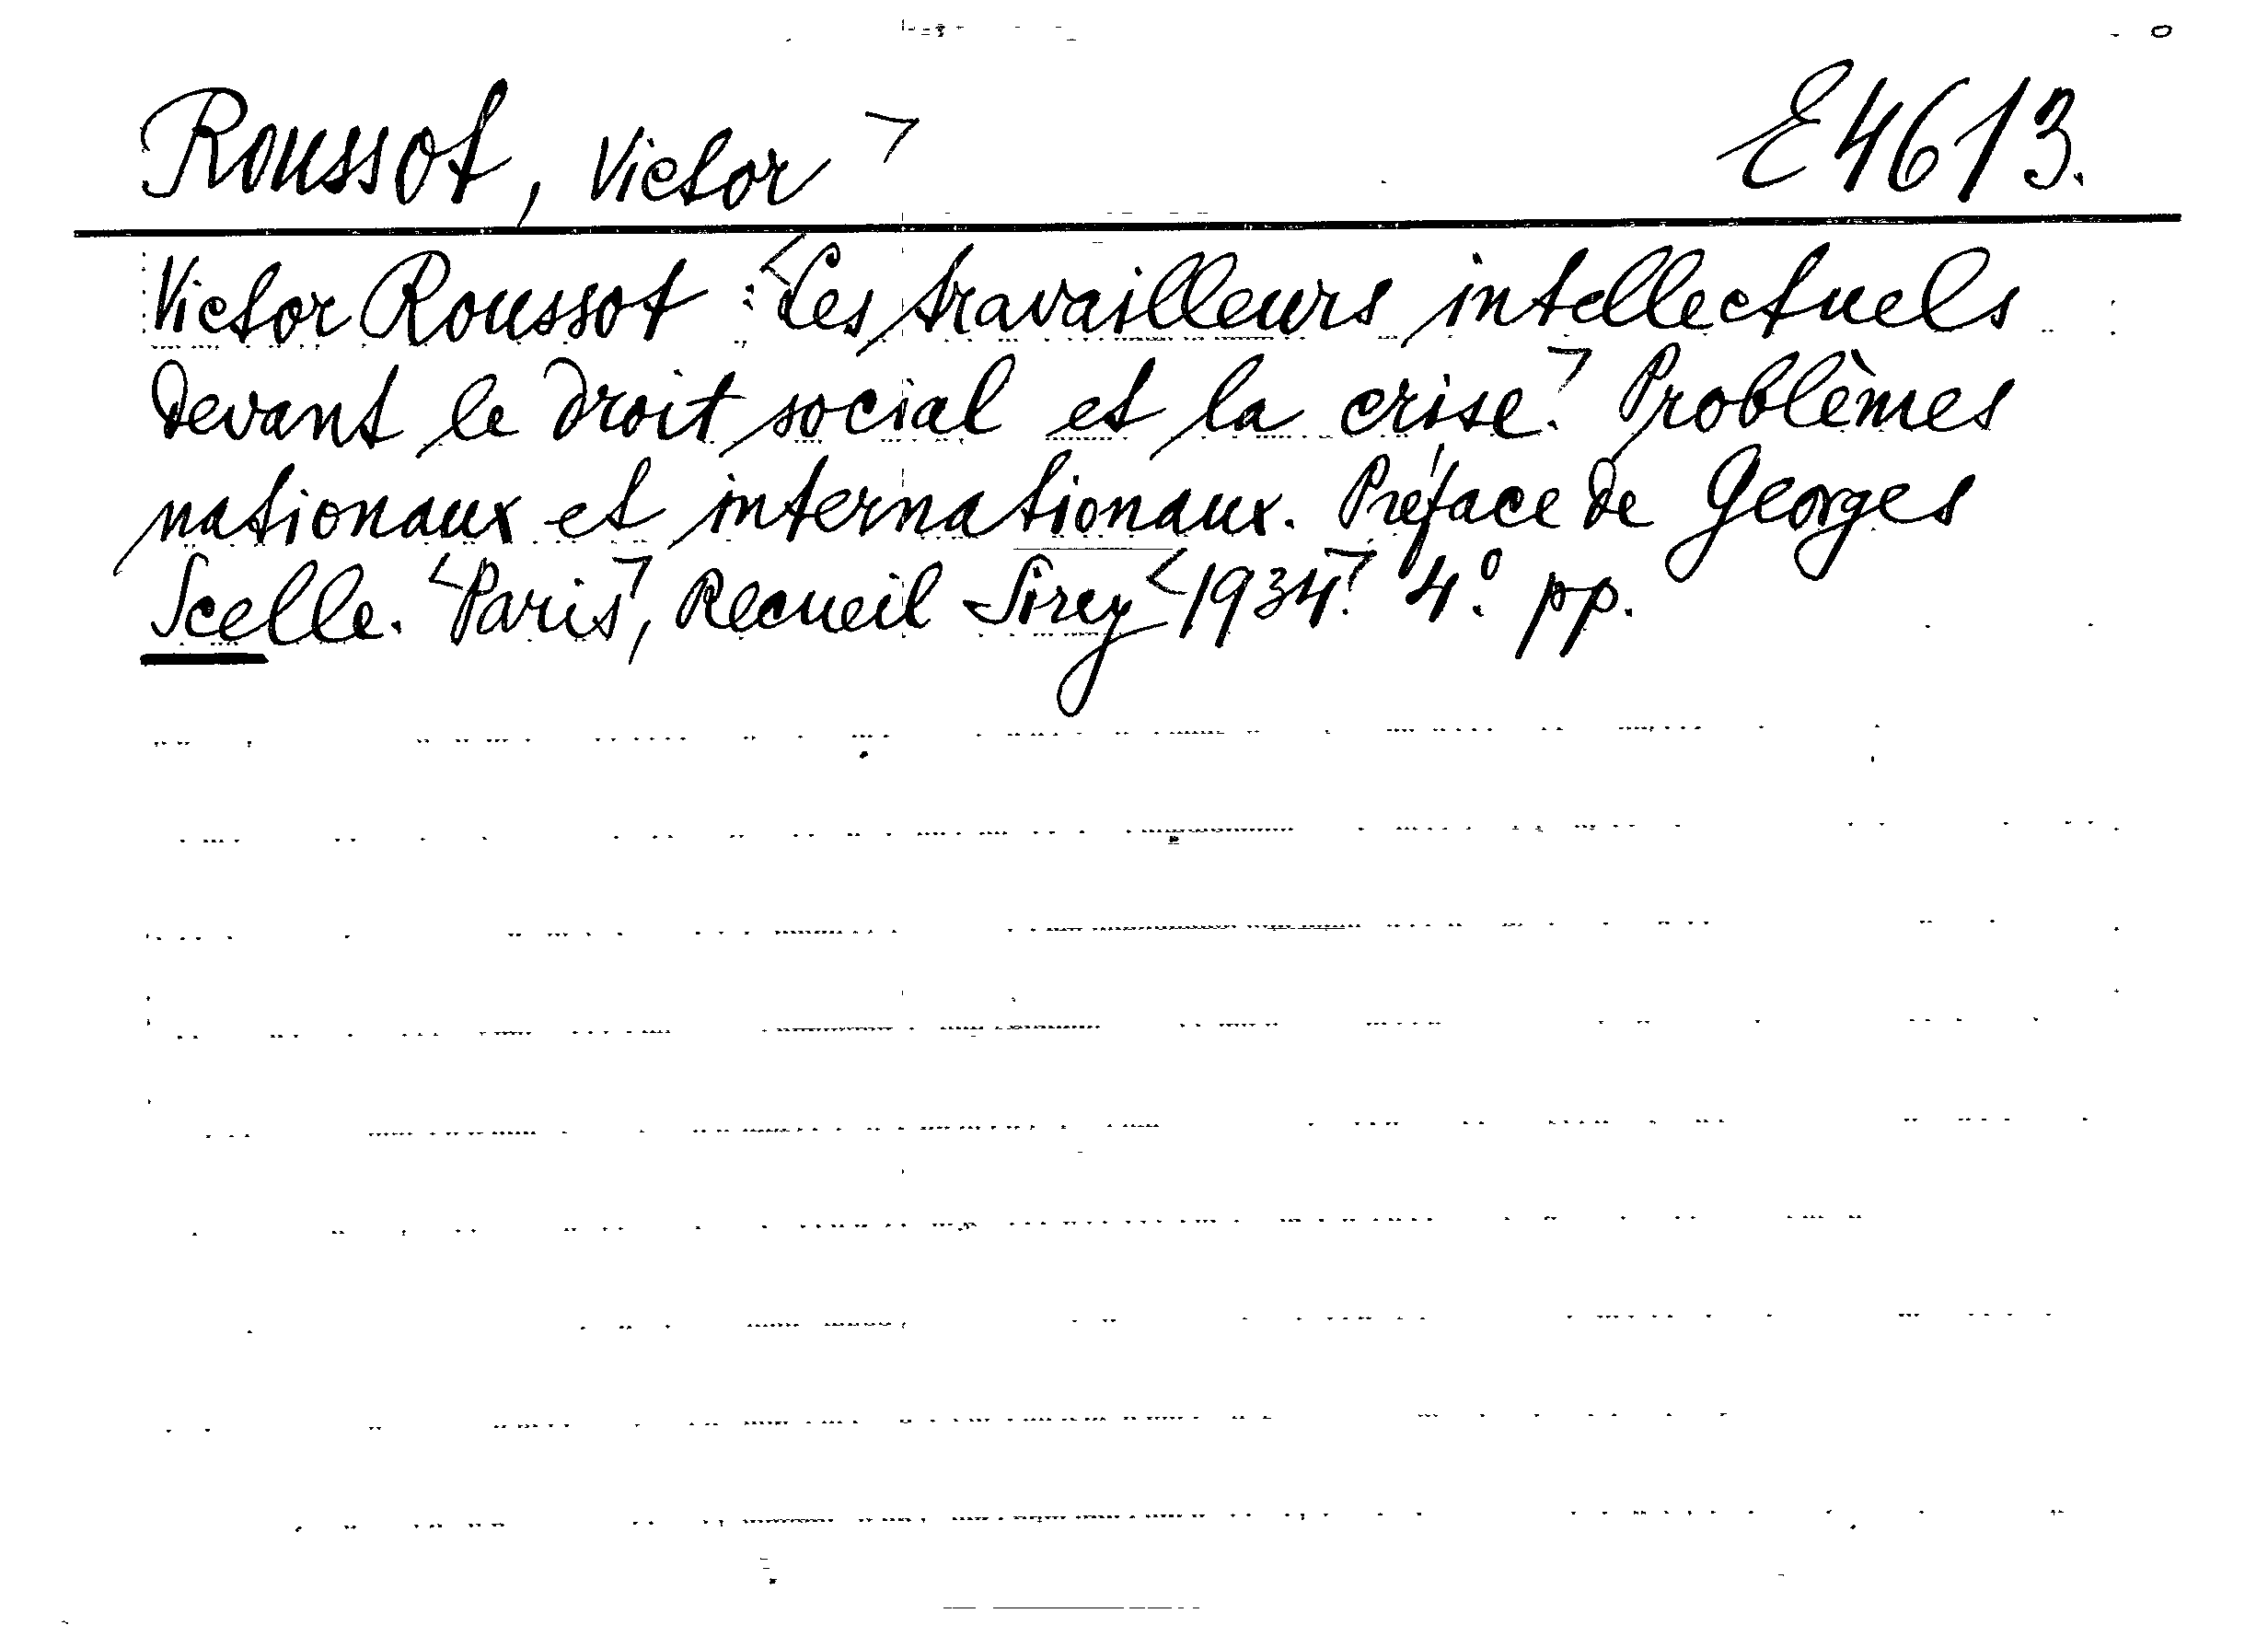 Roussot, Victor ¬ E4613.
Victor Roussot : <Les travailleurs intellectuels
devant le droit social et la crise.¬ Problèmes
nationaux et internationaux. Préface de Georges
Scelle. <Paris¬, Recueil Sirey <1934¬. 4.° pp.